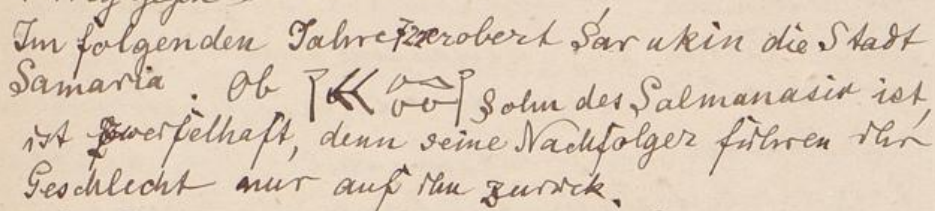 Im folgenden Jahre 722 erobert Šarukin die Stadt
Samaria. Ob Sohn des Salmanasir ist,
ist zweifelhaft, denn seine Nachfolger führen ihr
Geschlecht nur auf ihn zurück.